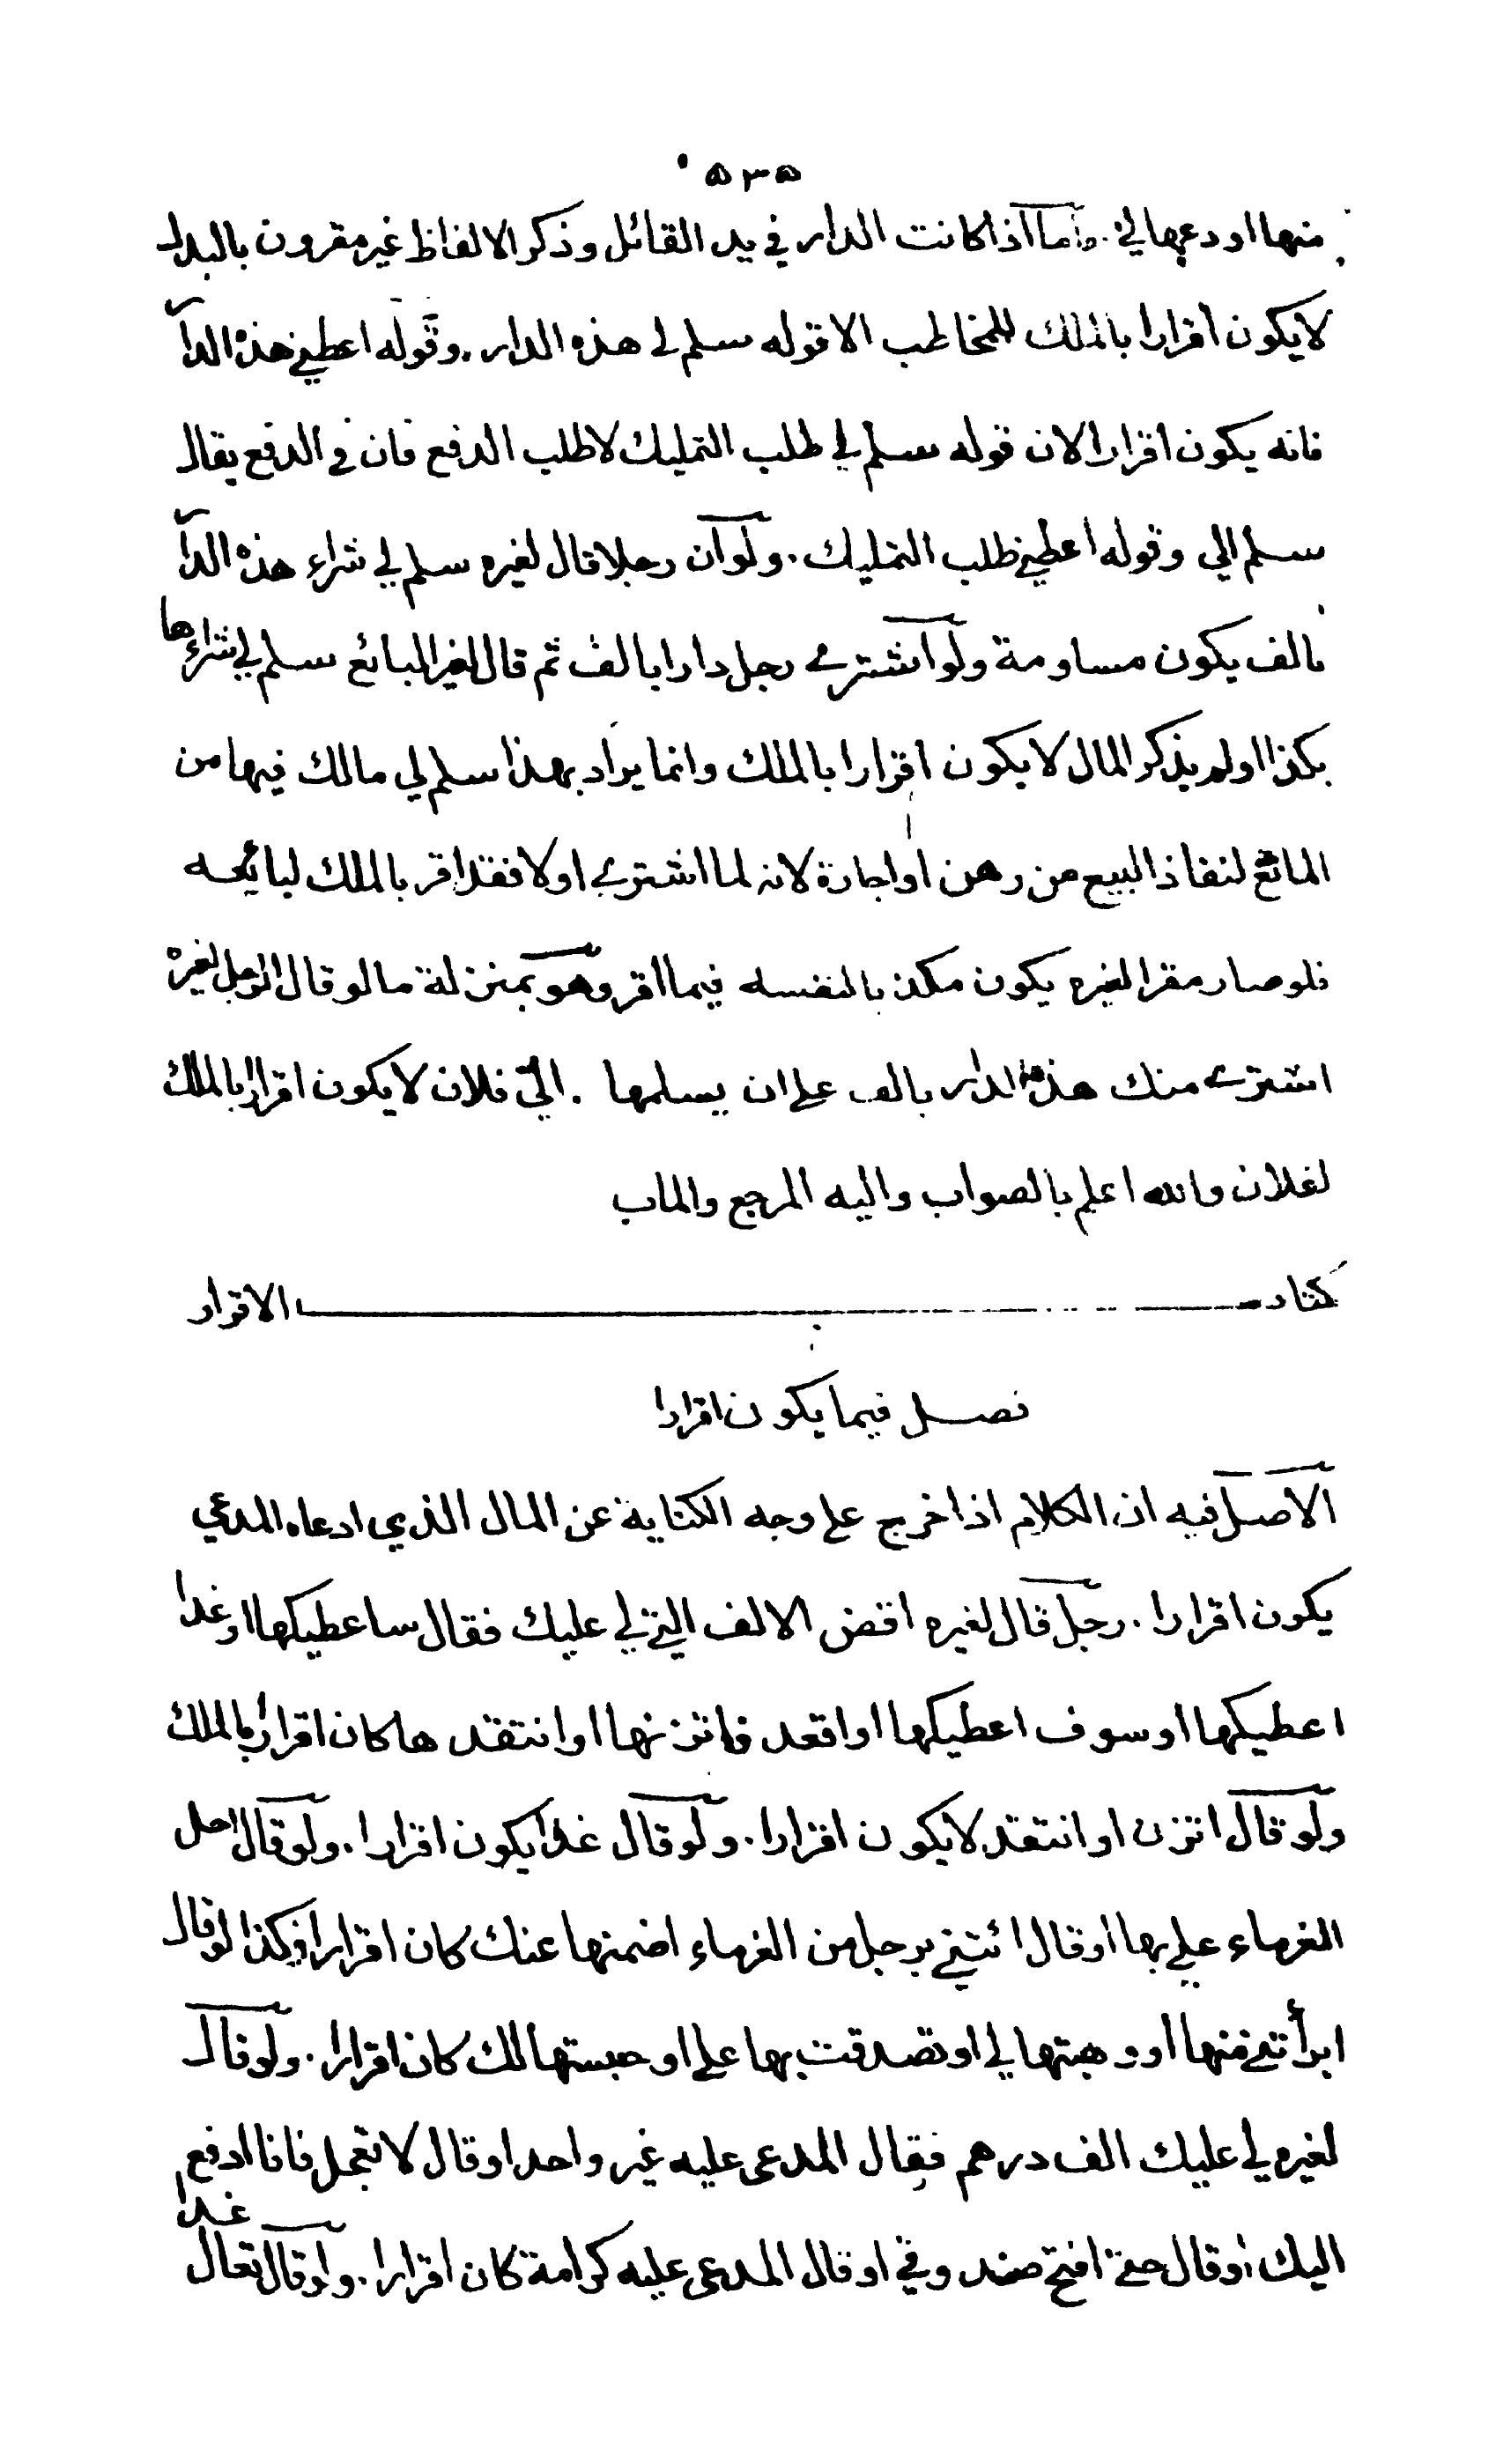 ٥٣٥
منها اودعها لي . واما اذا كانت الدار في يد القائل وذكر الالفاظ غير مقرون بالبدل
لا يكون اقرارا بالملك للمخاطب الا قوله سلم لي هذه الدار . وقوله اعطني هذه الدا
فانه يكون اقرارا لان قوله سلم لي طلب التمليك لا طلب الدفع فان في الدفع يقال
سلم الي وقوله اعطني طلب التمليك . ولو ان رجلا قال لغيره سلم لي شراء هذه الدا
بالف يكون مساومة ولو اشترى رجل دارا بالف ثم قال لغير البائع سلم لي شراءها
بكذا اولم يذكر المال لا يكون اقرارا بالملك وانما يراد بهذا سلم لي مالك فيها من
المانع لنفاذ البيع من رهن او اجارة لانه لما اشترى اولا فقد اقر بالملك لبائعه
فلو صار مقرا لغيره يكون مكذبا لنفسه فيما اقر وهو بمنزلة ما لو قال الرجل لغيره
اشترى منك هذه الدار بالف على ان يسلمها . الى فلان لا يكون اقرارا بالملك
لفلان والله اعلم بالصواب واليه المرجع والماب
كتاب الاقرار
فصل فيما يكون اقرارا
الاصل فيه ان الكلام اذا خرج على وجه الكناية عن المال الذي ادعاه المدعي
يكون اقرارا . رجل قال لغيره اقض الالف التي لي عليك فقال ساعطيكها او غدا
اعطيكها او سوف اعطيكها او اقعد فاتزنها او انتقدها كان اقرارا بالملك
ولو قال اتزن او انتقد لا يكون اقرارا . ولو قال غدا يكون اقرارا . ولو قال احل
الغرماء علي بها او قال ائتني برجل من الغرماء اضمنها عنك كان اقرارا وكذا لو قال
ابرأتني منها او وهبتها لي او تصدقت بها علي او حبستها لك كان اقرارا . ولو قال
لغيره لي عليك الف درهم فقال المدعى عليه غير واحد او قال لا تعجل فانا ادفع غدا
اليك او قال حتى افتح صندوقي او قال المدعى عليه كرامة كان اقرارا . ولو قال تعال